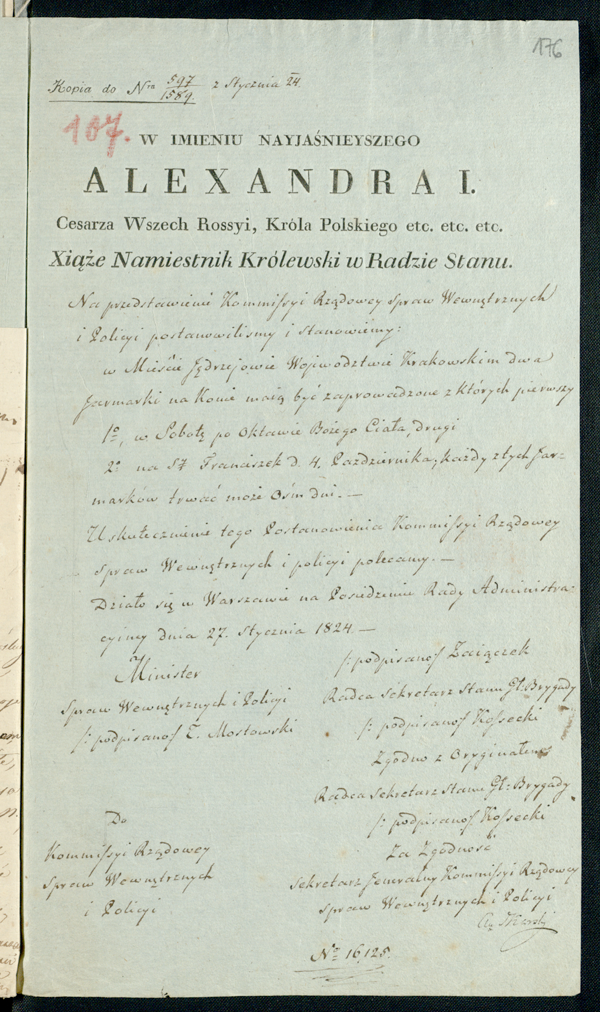 176
Kopia do Nra 597/1589 z Stycznia 24.
107.
W IMIENIU NAYJAŚNIEYSZEGO
ALEXANDRA I.
Cesarza Wszech Rossyi, Króla Polskiego etc. etc. etc.
Xiąże Namiestnik Królewski w Radzie Stanu.
Na przedstawienie Kommissyi Rządowey Spraw Wewnętrznych
i Policyi postanowilismy i stanowiemy:
w Mieście Jędrzejowie Województwie Krakowskim dwa
Jarmarki na Konie maią być zaprowadzone z których pierwszy
1o, w Sobotę po Oktawie Bożego Ciała, drugi
2o na St Franciszek d. 4. Października, każdy z tych Jar-
marków trwać może Ośm dni. —
Uskutecznienie tego Postanowienia Kommissyi Rządowey
Spraw Wewnętrznych i policyi polecamy. —
Działo się w Warszawie na Posiedzeniu Rady Administra-
cyiney dnia 27. Stycznia 1824. —
Minister
Spraw Wewnętrznych i Policyi
/: podpisano/ T. Mostowski
/: podpisano/ Zaiączek
Radca Sekretarz Stanu Gł: Brygady
/: podpisano/ Kossecki
Zgodno z Oryginałem
Radca Sekretarz Stanu Gł: Brygady
/: podpisano/ Kossecki
Za Zgodność
Sekretarz Jeneralny Kommissyi Rządowey
Spraw Wewnętrznych i Policyi
Do
Kommissyi Rządowey
Spraw Wewnętrznych
i Policyi
No 16,125.